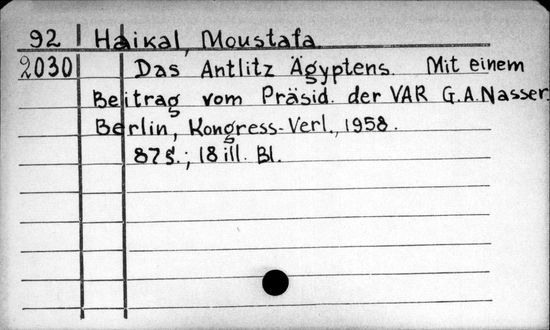 92 Haikal, Moustafa
2030 Das Antlitz Ägyptens. Mit einem
Beitrag vom Präsid. der VAR G.A.Nasser.
Berlin, Kongress-Verl., 1958.
87 S.; 18 ill. Bl.